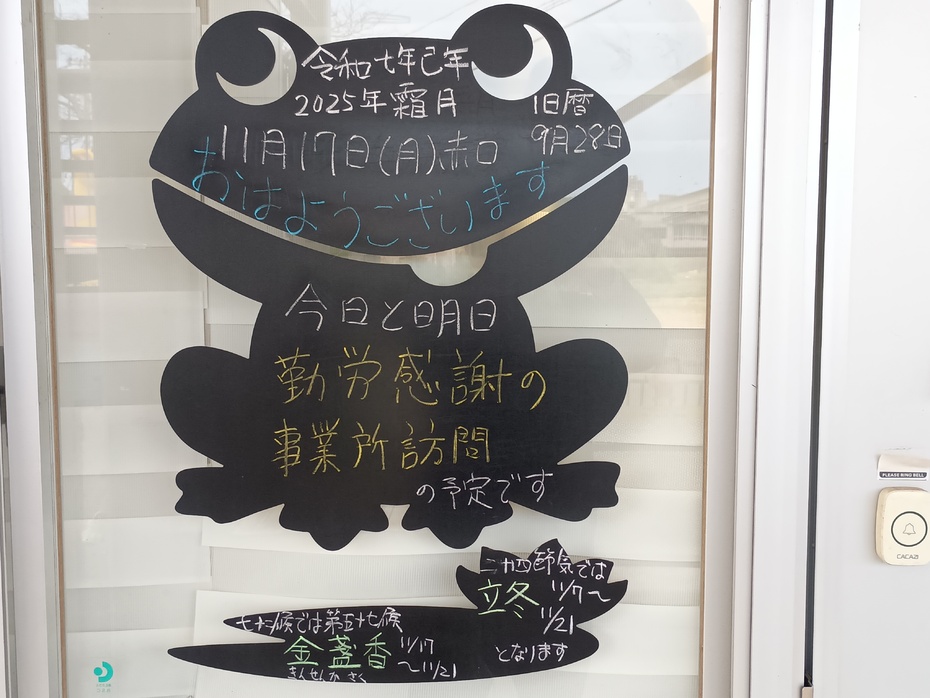 令和七年己年
2025年 霜月
旧暦
9月28日
11月17日(月)赤口
おはようございます
今日と明日
勤労感謝の
事業所訪問
の予定です
二十四節気では
立冬 11/7〜
11/21
となります
七十二候では第五十七候
金盞香 11/17
〜11/21
きんせんか さく
PLEASE RING BELL
CACAZI